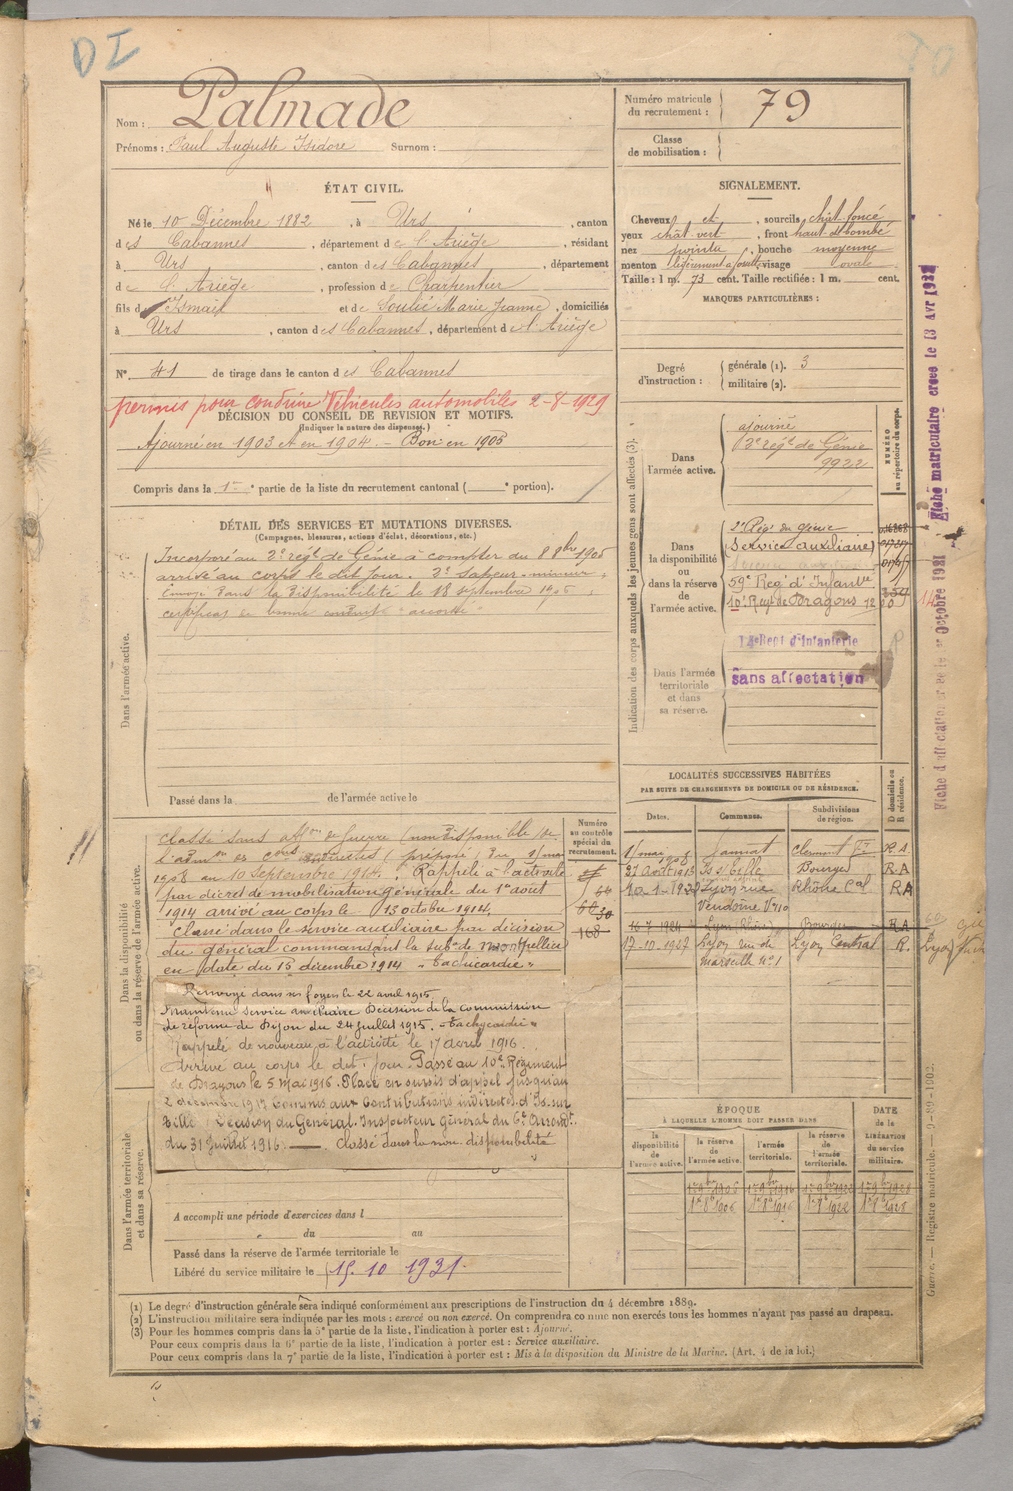 DI
Nom : Palmade
Prénoms : Paul Auguste Isidore Surnom :
Numéro matricule du recrutement : 79
Classe de mobilisation :
ÉTAT CIVIL.
Né le 10 Décembre 1882, à Urs, canton
des Cabannes, département de l'Ariège, résidant
à Urs, canton des Cabannes, département
de l'Ariège, profession de Charpentier
fils d' Ismaël et de Soulié Marie Jeanne, domiciliés
à Urs, canton des Cabannes, département de l'Ariège
N° 41 de tirage dans le canton des Cabannes
permis pour conduire Véhicules automobiles 2-8-1929
DÉCISION DU CONSEIL DE REVISION ET MOTIFS.
(Indiquer la nature des dispenses.)
Ajourné en 1903 et en 1904. - Bon en 1905
Compris dans la 1re partie de la liste du recrutement cantonal ( e portion).
SIGNALEMENT.
Cheveux et, sourcils chât foncé
yeux chât vert, front haut et bombé
nez pointu, bouche moyenne
menton légèrement à fossette, visage ovale
Taille : 1 m. 73 cent. Taille rectifiée : 1 m. cent.
MARQUES PARTICULIÈRES :
Degré d'instruction :
générale (1). 3
militaire (2).
Indication des corps auxquels les jeunes gens sont affectés (3).
NUMÉRO au répertoire du corps.
Dans l'armée active.
ajourné
2e régt de Génie
9922
Dans la disponibilité ou dans la réserve de l'armée active.
2e Régt du génie
(Service auxiliaire)
59e Reg d'Infant
10e Regt de Dragons 1200
14
14e Regt d'Infanterie
Dans l'armée territoriale et dans sa réserve.
Sans affectation
Fiche matriculaire créée le 13 Avr 1932
Octobre 1921
DÉTAIL DES SERVICES ET MUTATIONS DIVERSES.
(Campagnes, blessures, actions d'éclat, décorations, etc.)
Dans l'armée active.
Incorporé au 2e régt de Génie à compter du 8 8bre 1905
arrivé au corps le dit jour. 2e Sapeur-mineur
Envoyé dans la disponibilité le 18 septembre 1906,
certificat de bonne conduite "accordé"
Passé dans la de l'armée active le
Dans la disponibilité ou dans la réserve de l'armée active.
Numéro au contrôle spécial du recrutement.
168
Classé sans affon de Guerre (non disponible) de
l'admon des Cons indirectes (préposé) du 1 mai
1908 au 10 Septembre 1914. Rappelé à l'activité
par décret de mobilisation générale du 1er août
1914 arrivé au corps le 13 octobre 1914.
Classé dans le service auxiliaire par décision
du général commandant la subon de Montpellier
en date du 15 décembre 1914 "tachicardie"
Renvoyé dans ses foyers le 22 avril 1915.
Maintenu service auxiliaire Décision de la commission
de réforme de Dijon du 24 juillet 1915. "tachycardie"
Rappelé de nouveau à l'activité le 17 avril 1916.
Arrivé au corps le dit jour. Passé au 10e Régiment
de Dragons le 5 Mai 1916. Placé en sursis d'appel jusqu'au
2 décembre 1917 Commis aux Contributions indirectes d'Is-sur
Tille. Décision du Général Inspecteur Général du 6e Arrondt
du 31 Juillet 1916. —. classé dans la non disponibilité
LOCALITÉS SUCCESSIVES HABITÉES
PAR SUITE DE CHANGEMENTS DE DOMICILE OU DE RÉSIDENCE.
Dates. Communes. Subdivisions de région. D domicile ou R résidence.
1 mai 1908 Jannat Clermont Fd R A
27 août 1913 Is s/ Tille Bourges R.A
Lyon rue Vendôme Rhône Cal RA
16 7 1924 Lyon (Rhône) R A
17-10-1927 Lyon rue de Marseille n° 1 Lyon Central R.
ÉPOQUE
À LAQUELLE L'HOMME DOIT PASSER DANS
la disponibilité de l'armée active.
la réserve de l'armée active.
l'armée territoriale.
la réserve de l'armée territoriale.
DATE de la LIBÉRATION du service militaire.
1er 8b 1906 1er 8b 1916 1er 8b 1922 1er 8b 1928
Dans l'armée territoriale et dans sa réserve.
A accompli une période d'exercices dans l
du au
Passé dans la réserve de l'armée territoriale le
Libéré du service militaire le 15. 10 1931.
(1) Le degré d'instruction générale sera indiqué conformément aux prescriptions de l'instruction du 4 décembre 1889.
(2) L'instruction militaire sera indiquée par les mots : exercé ou non exercé. On comprendra comme non exercés tous les hommes n'ayant pas passé au drapeau.
(3) Pour les hommes compris dans la 5e partie de la liste, l'indication à porter est : Ajourné.
Pour ceux compris dans la 6e partie de la liste, l'indication à porter est : Service auxiliaire.
Pour ceux compris dans la 7e partie de la liste, l'indication à porter est : Mis à la disposition du Ministre de la Marine. (Art. 4 de la loi.)
Guerre. — Registre matricule. — 9-89-1902.